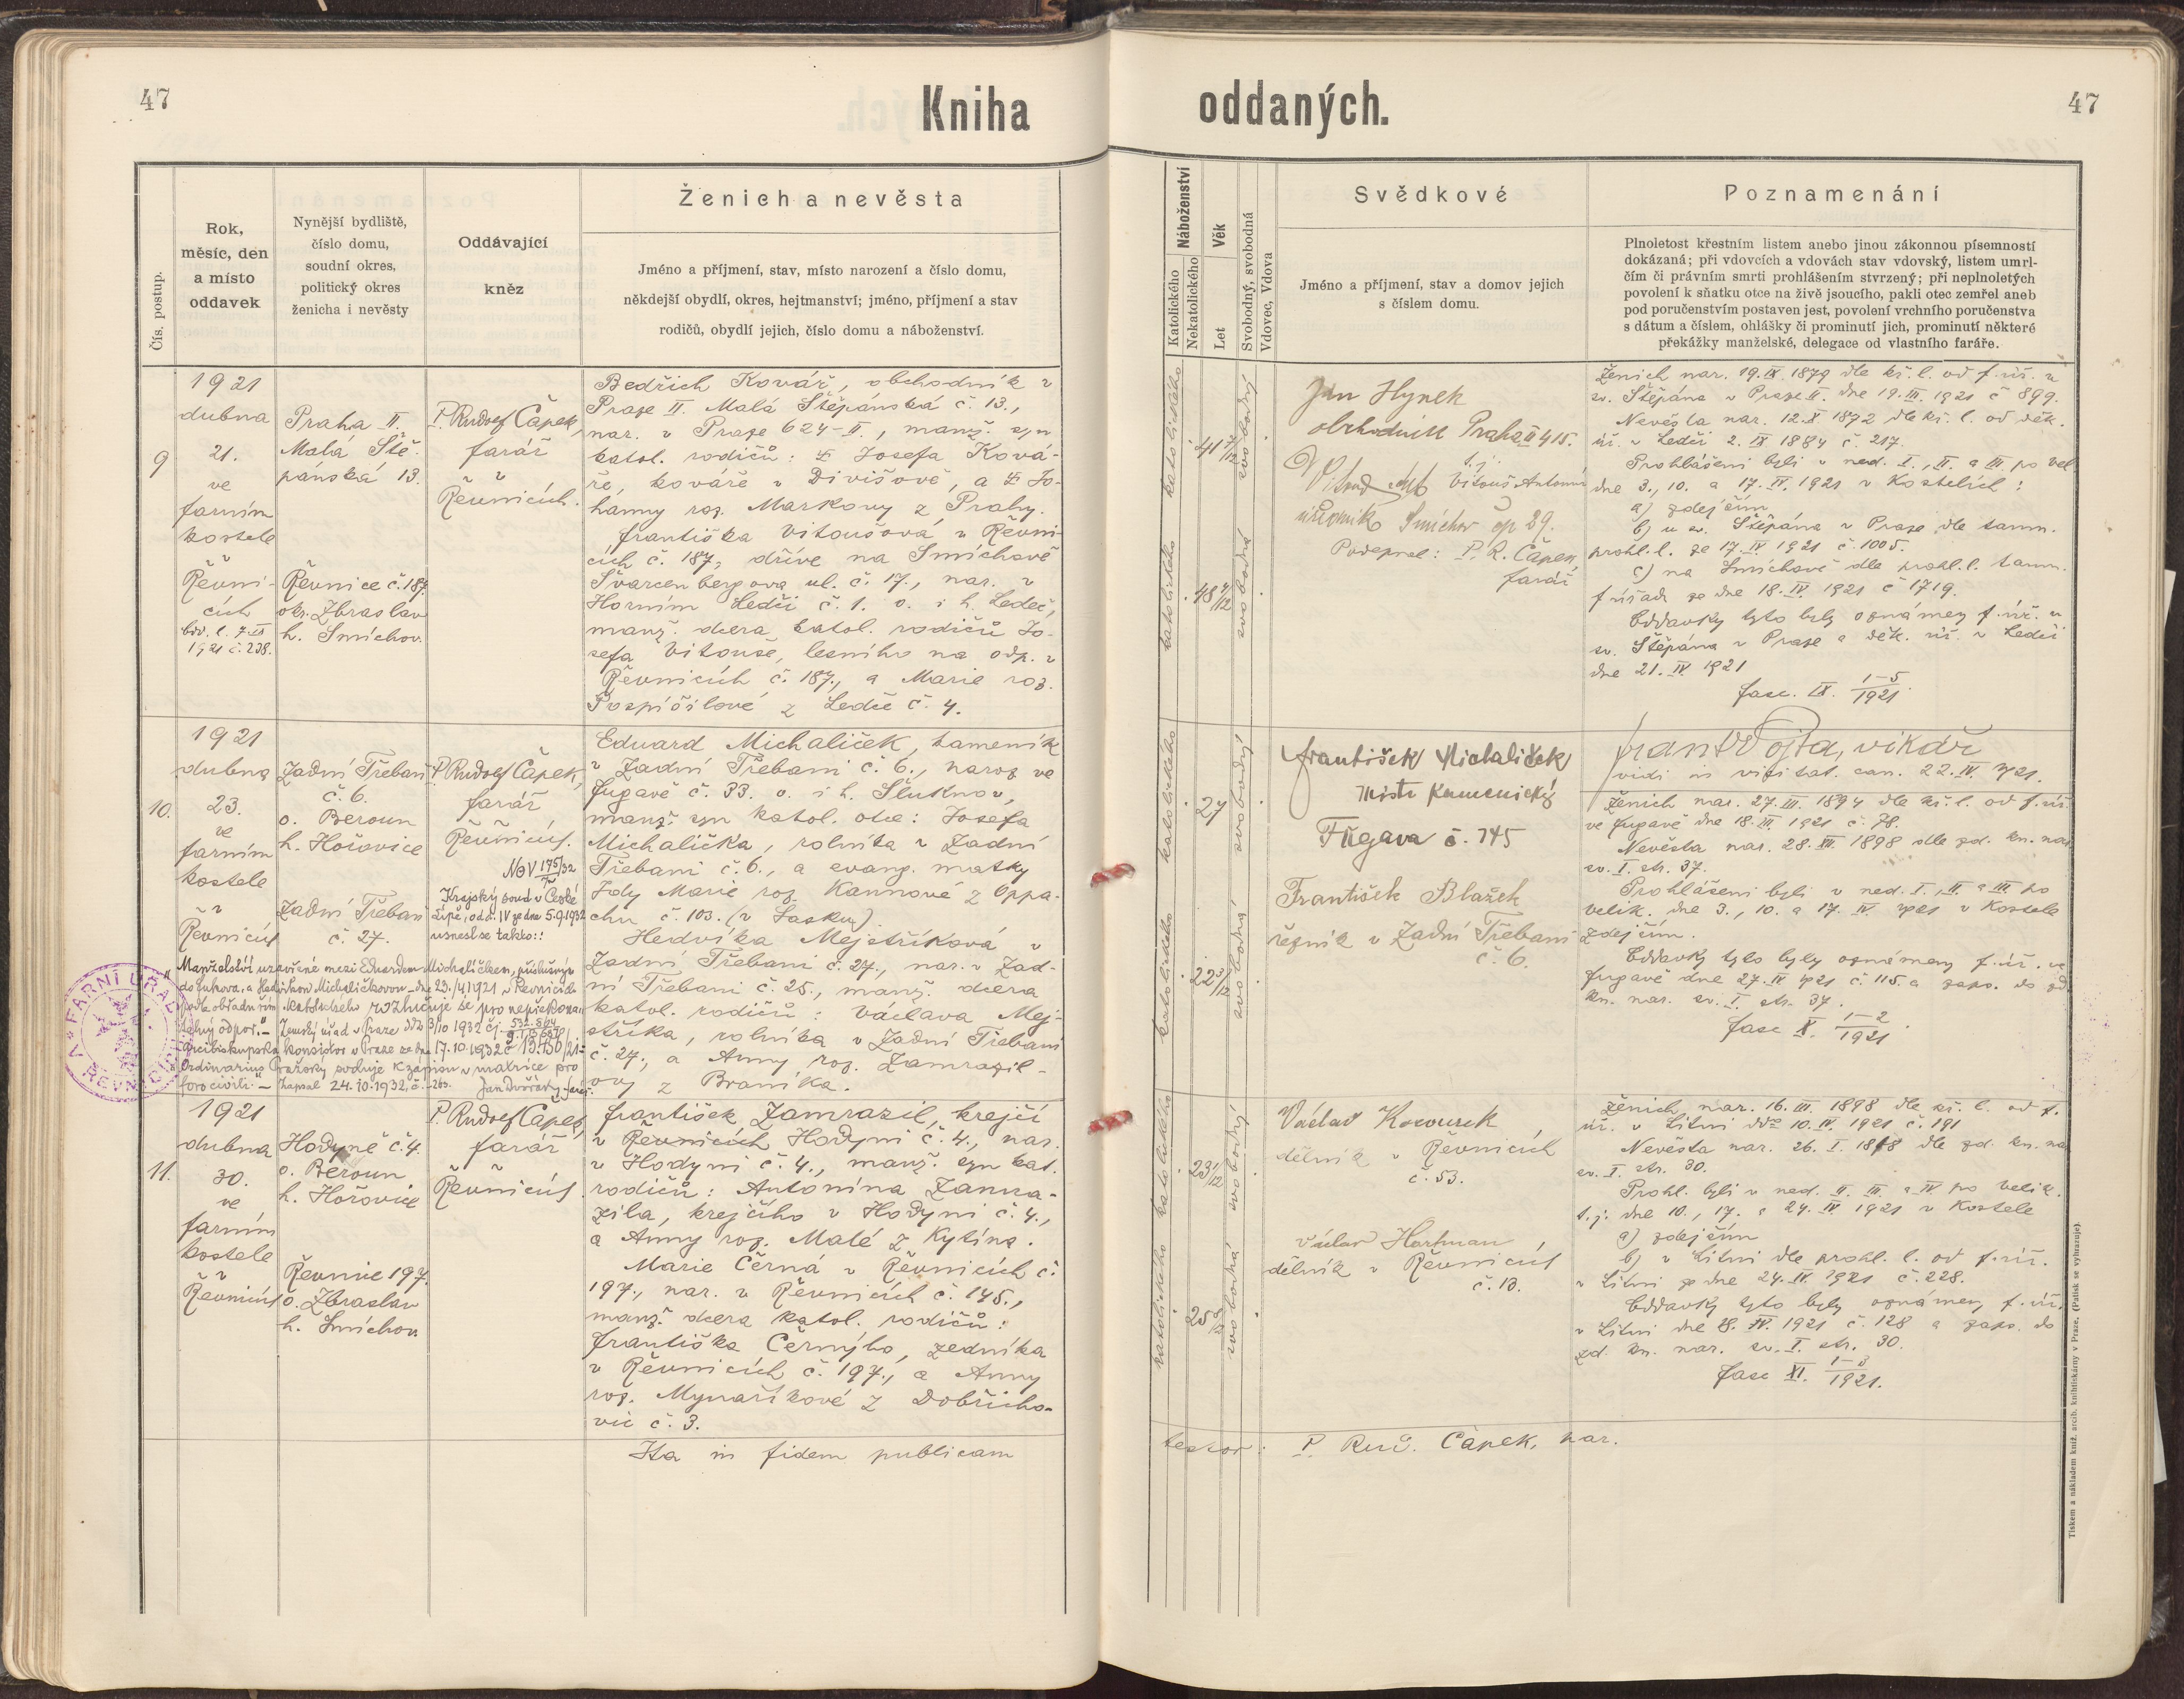 47
Kniha
oddaných.
47
Čís. postup.
Rok,
měsíc, den
a místo
oddavek
Nynější bydliště,
číslo domu,
soudní okres,
politický okres
ženicha i nevěsty
Oddávající
kněz
Ženich a nevěsta
Jméno a příjmení, stav, místo narození a číslo domu,
někdejší obydlí, okres, hejtmanství; jméno, příjmení a stav
rodičů, obydlí jejich, číslo domu a náboženství.
Náboženství
Katolického
Nekatolického
Věk
Let
Svobodný, svobodná
Vdovec, Vdova
Svědkové
Jméno a příjmení, stav a domov jejich
s číslem domu.
Poznamenání
Plnoletost křestním listem anebo jinou zákonnou písemností
dokázaná; při vdovcích a vdovách stav vdovský, listem umrl-
čím či právním smrti prohlášením stvrzený; při neplnoletých
povolení k sňatku otce na živě jsoucího, pakli otec zemřel aneb
pod poručenstvím postaven jest, povolení vrchního poručenstva
s dátum a číslem, ohlášky či prominutí jich, prominutí některé
překážky manželské, delegace od vlastního faráře.
9
1921
dubna
21.
ve
farním
kostele
v
Řevni-
cích
1921 č. 238.
Praha II.
Malá Ště-
pánská 13.
Řevnice č. 187.
okr. Zbraslav
h. Smíchov.
P. Rudolf Čapek,
farář
v
Řevnicích.
Bedřich Kovář, obchodník v
Praze II. Malá Štěpánská č. 13.,
nar. v Praze 624-II., manž. syn
katol. rodičů: Josefa Ková-
ře, kováře v Divišově, a Jo-
hanny roz. Markovy z Prahy.
Františka Vitoušová v Řevni-
cích č. 187, dříve na Smíchově
Švarcenbergova ul. č. 17., nar. v
Horním Ledči č. 1. o. i h. Ledeč,
manž. dcera katol. rodičů Jo-
sefa Vitouše, lesního na odp. v
Řevnicích č. 187., a Marie roz.
Pospíšilové z Ledče č. 4.
katolického
41 7/12
svobodný
katolického
48 7/12
svobodná
Jan Hynek
obchodník Praha II 415.
t. j.
Vitouš Antonín
úředník Smíchov čp 39.
Podepsal: P. R. Čapek,
farář
Ženich nar. 19. IX. 1879 dle kř. l. od f. úř. u
sv. Štěpána v Praze II. dne 19. III. 1921 č 899.
Nevěsta nar. 12. X 1872 dle kř. l. od děk.
úř. v Ledči 2. IX 1884 č. 217.
Prohlášeni byli v ned. I., II. a III. po vel.
dne 3., 10. a 17. IV. 1921 v kostelích:
a) zdejším
b) u sv. Štěpána v Praze dle tamn.
prohl. l. ze 17. IV 1921 č. 1005.
c) na Smíchově dle prohl. l. tamn.
f. úřadu ze dne 18. IV. 1921 č 1719.
Oddavky tyto byly oznámeny f. úř. u
sv. Štěpána v Praze a děk. úř. v Ledči
dne 21. IV. 1921
fasc. IX. 1-5/1921.
10.
1921
dubna
23.
ve
farním
kostele
v
Řevnicích
Zadní Třebaň
č. 6.
o. Beroun
h. Hořovice
Zadní Třebaň
č. 27.
P. Rudolf Čapek,
farář
v
Řevnicích.
Krajský soud v České
Lípě, odd. IV ze dne 5.9.1932
usnesl se takto:
"Manželství uzavřené mezi Eduardem Michalíčkem, příslušným
a Hedvikou Michalíčkovou – dne 23./4 1921 v Řevnicích
podle obřadu řím. katolického rozlučuje se pro nepřekona-
telný odpor." Zemský úřad v Praze ddo 3/10 1932 čj.
Arcibiskupská konsistoř v Praze ze dne 17.10.1932
Ordinarius Pražský svoluje k zápisu v matrice pro
foro civili." – Zapsal 24.10.1932, č. 263. Jan Dvořák, farář.
FARNÍ ÚŘAD
ŘEVNICE
Eduard Michalíček, kameník
v Zadní Třebani č. 6., naroz. ve
Fugavě č. 33. o. i h. Šluknov,
manž. syn katol. otce: Josefa
Michalíčka, rolníka v Zadní
Třebani č. 6., a evang. matky
Idy Marie roz. Kannové z Oppa-
chu č. 103. (v Sasku)
Hedvika Mejstříková v
Zadní Třebani č. 27., nar. v Zad-
ní Třebani č. 25., manž. dcera
katol. rodičů: Václava Mej-
stříka, rolníka v Zadní Třebani
č. 27., a Anny roz. Zamrazil-
ovy z Braníka.
katolického
27
svobodný
katolického
22 3/12
svobodná
František Michalíček
mistr kamenický
Fugava č. 145
František Blažek
řezník v Zadní Třebani
č. 6.
Frant. Vojta, vikář
vidi in visitat. can. 22. IV. 1921.
Ženich nar. 27. III. 1894 dle kř. l. od f. úř.
ve Fugavě dne 18. III. 1921 č. 78.
Nevěsta nar. 28. XII. 1898 dle zd. kn. nar.
sv. I. str. 37.
Prohlášeni byli v ned. I., II. a III po
velik. dne 3., 10. a 17. IV. 1921 v kostele
zdejším.
Oddavky tyto byly oznámeny f. úř. ve
Fugavě dne 27. IV 1921 č. 115. a zaps. do zd.
kn. nar. sv. I. str. 37.
fasc X. 1-2/1921.
11.
1921
dubna
30.
ve
farním
kostele
v
Řevnicích
Hodyně č. 4.
o. Beroun
h. Hořovice
Řevnice 197.
o. Zbraslav
h. Smíchov.
P. Rudolf Čapek,
farář
v
Řevnicích.
František Zamrazil, krejčí
v Řevnicích Hodyni č. 4., nar.
v Hodyni č. 4., manž. syn kat.
rodičů: Antonína Zamra-
zila, krejčího v Hodyni č. 4.,
a Anny roz. Malé z Kytína.
Marie Černá v Řevnicích č.
197., nar. v Řevnicích č. 145.,
manž. dcera katol. rodičů:
Františka Černýho, zedníka
v Řevnicích č. 197., a Anny
roz. Mynaříkové z Dobřicho-
vic č. 3.
katolického
23 1/12
svobodný
katolického
svobodná
Václav Kocourek,
dělník v Řevnicích
č. 53.
Václav Hartman,
dělník v Řevnicích
č. 13.
Ženich nar. 16. III. 1898 dle kř. l. od f.
úř. v Litni ddo 10. IV. 1921 č. 191
Nevěsta nar. 26. I. dle zd. kn. nar.
sv. I. str. 30.
Prohl. byli v ned. II. III. a IV po velik.
t. j. dne 10., 17. a 24. IV 1921 v kostele
a) zdejším
b) v Litni dle prohl. l. od f. úř.
v Litni ze dne 24. IV. 1921 č. 228.
Oddavky tyto byly oznámeny f. úř.
v Litni dne 1921 č. 128 a zaps. do
zd. kn. nar. sv. I. str. 30.
fasc XI. 1-3/1921.
Ita in fidem publicam
testor: P. Rud. Čapek, par.
Tiskem a nákladem kníž. arcib. knihtiskárny v Praze. (Patisk se vyhrazuje)